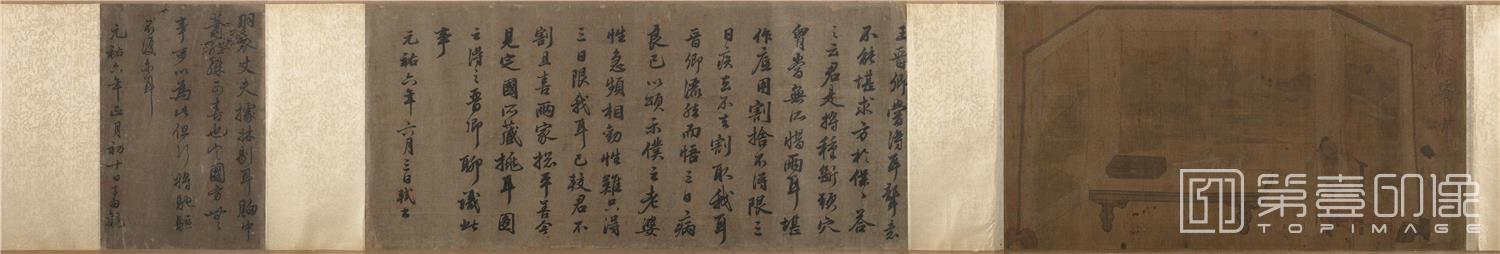 王晉卿嘗得耳聾意
不能堪求方於僕〻答
之云君是將種斷頭穴
胷當無所惜兩耳堪
作底用割捨不得限三
日疾去不去割取我耳
晉卿灑然而悟三日病
良已以頌示僕云老婆
性急頻相勸性難只得
三日限我耳已較君不
割且喜兩家揔平善今
見定國所藏挑耳圖
云得之晉卿聊識此
事
元祐六年六月三日軾書
羽衣丈夫據牀剔耳胸中
蕭然殊可喜也定國方無
事可以為此但行將馳驅
不復爾耳
元祐六年正月初十日
第壹印像
TOPIMAGE